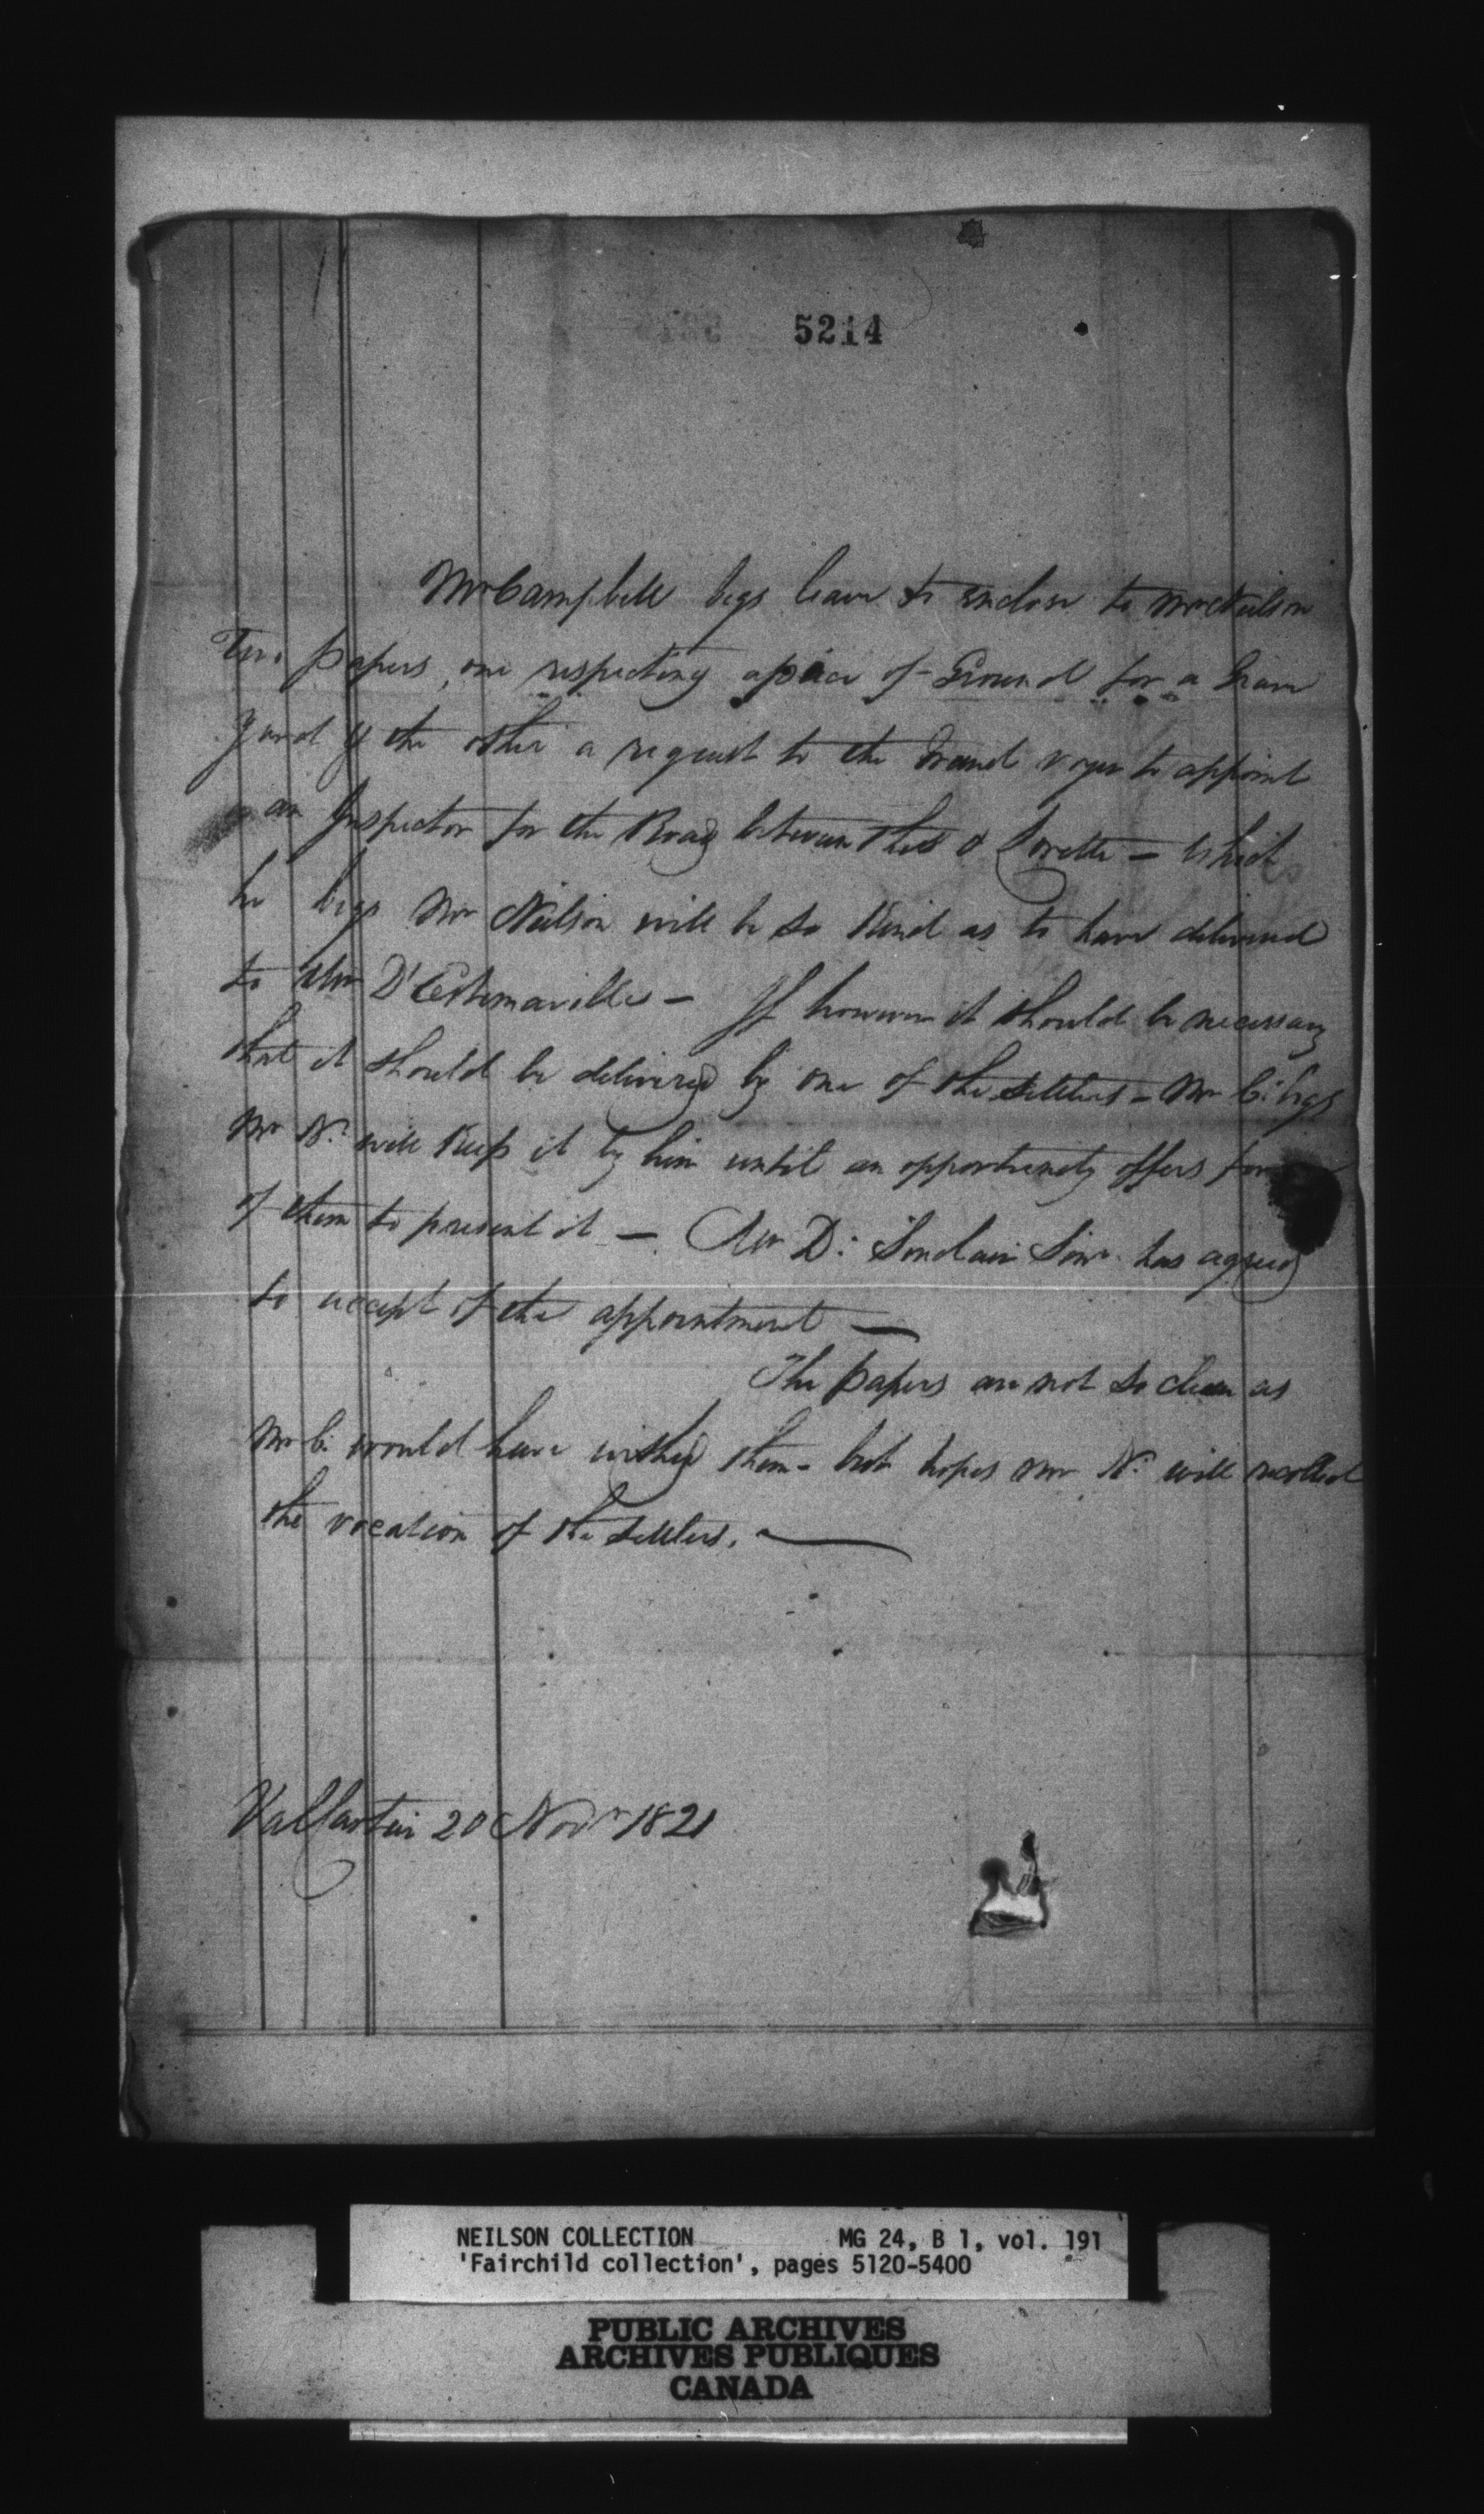 5214
Mr Campbell begs leave to enclose to Mr Neilson
Two papers, one respecting a piece of Ground for a Grave
Yard & the other a request to the Grand voyer to appoint
an Inspector for the Road between this & Lorette — which
he begs Mr Neilson will be so kind as to have delivered
to Mr D'Estimaville — If however it should be necessary
that it should be delivered by one of the settlers — Mr C. begs
Mr N. will keep it by him until an opportunity offers for
of them to present it — Mr D: Sinclair Senr. has agreed
to accept of the appointment —
The papers are not so clean as
Mr C. would have wished them - but hopes Mr N. will recollect
the vocation of the settlers. —
Valcartier 20 Novr 1821
NEILSON COLLECTION MG 24, B 1, vol. 191
'Fairchild collection', pages 5120-5400
PUBLIC ARCHIVES
ARCHIVES PUBLIQUES
CANADA